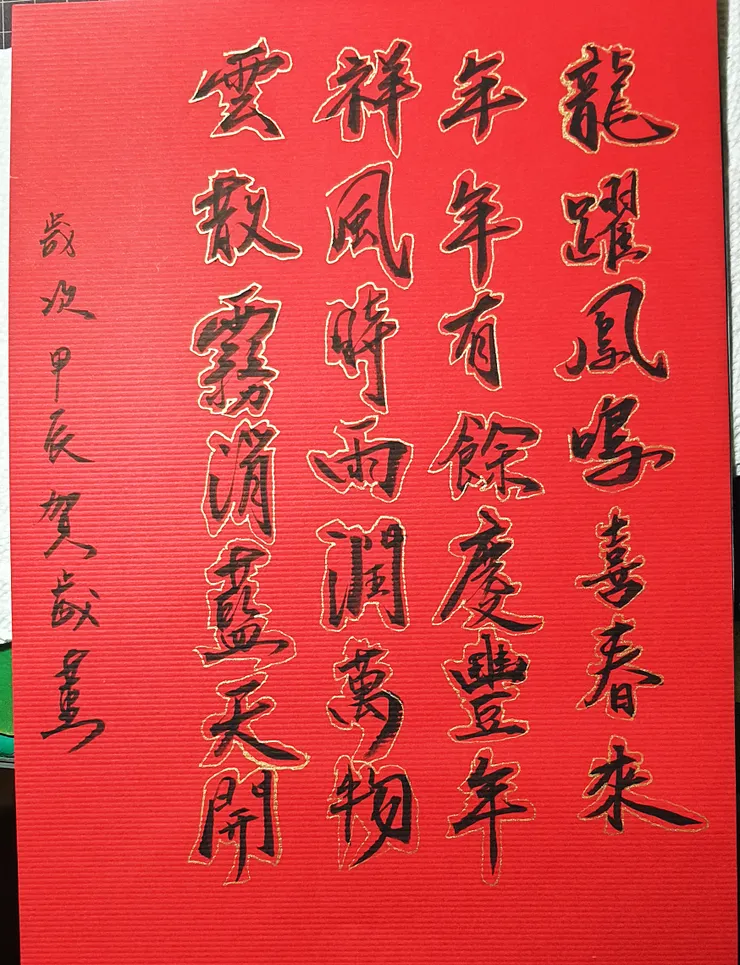 龍躍鳳鳴喜春來
年年有餘慶豐年
祥風時雨潤萬物
雲散霧消藍天開
歲次甲辰賀歲書